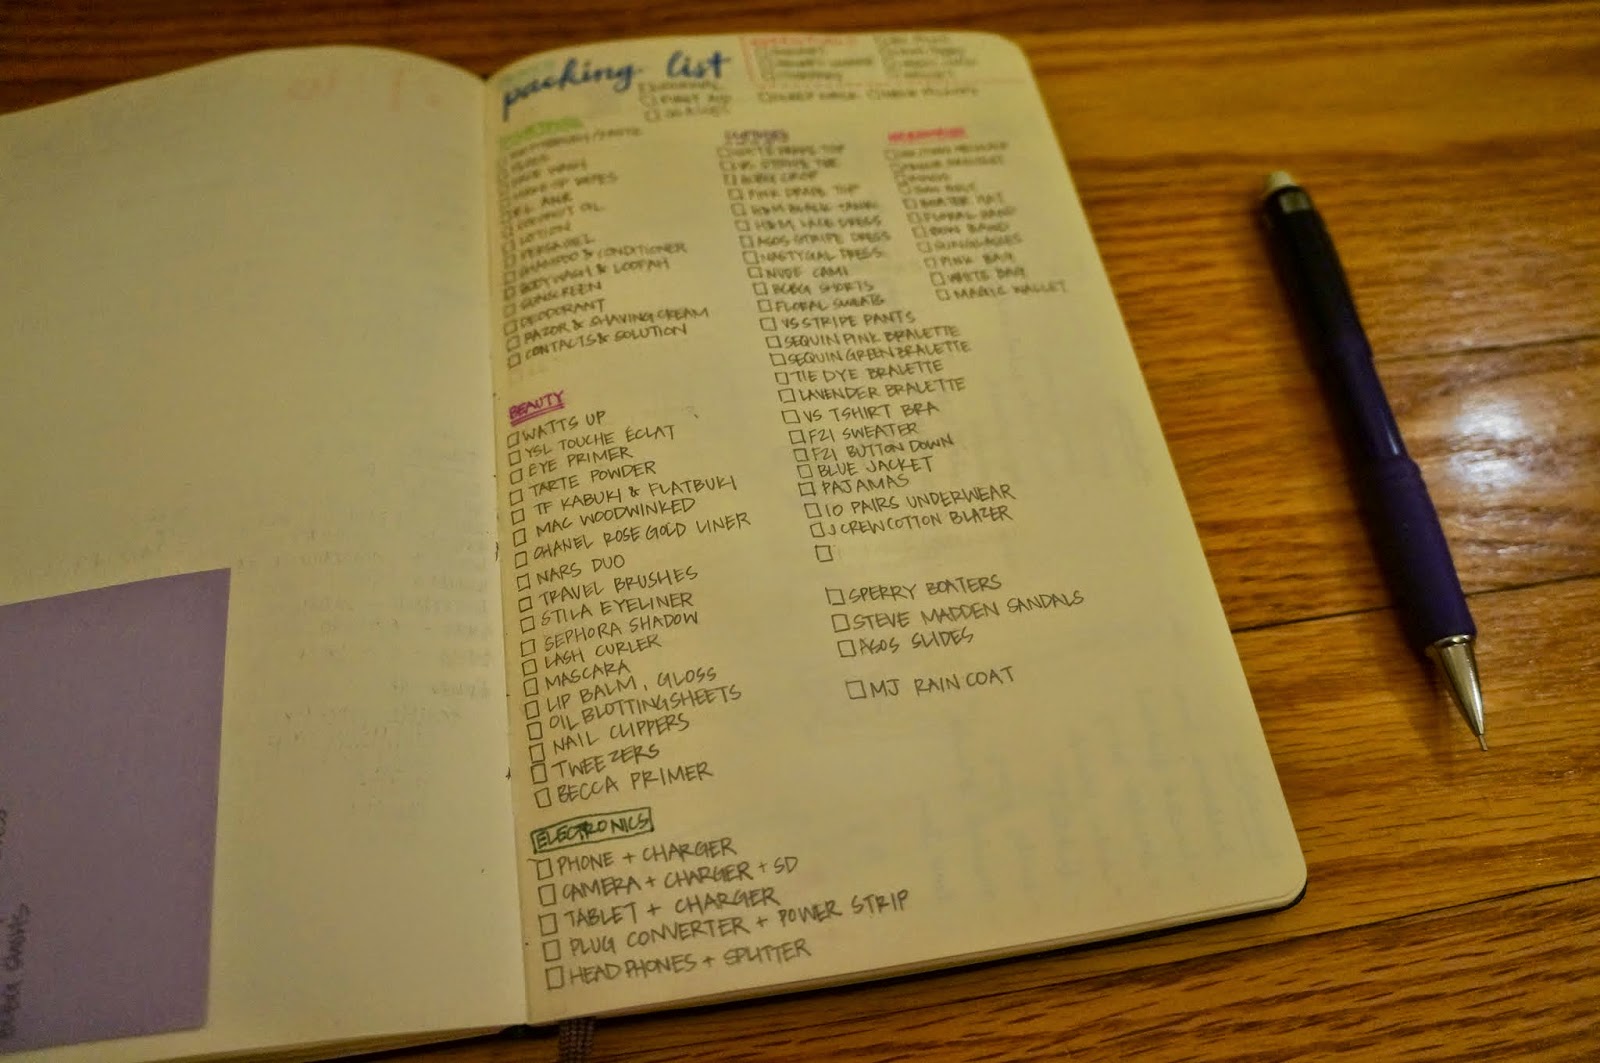 packing list
FIRST AID
FACE WASH
MAKE UP WIPES
COCONUT OIL
LOTION
SHAMPOO & CONDITIONER
BODYWASH & LOOFAH
SUNSCREEN
DEODORANT
RAZOR & SHAVING CREAM
CONTACTS & SOLUTION
BEAUTY
WATTS UP
YSL TOUCHE ÉCLAT
EYE PRIMER
TARTE POWDER
TF KABUKI & FLATBUKI
MAC WOODWINKED
CHANEL ROSE GOLD LINER
NARS DUO
TRAVEL BRUSHES
STILA EYELINER
SEPHORA SHADOW
LASH CURLER
MASCARA
LIP BALM, GLOSS
OIL BLOTTING SHEETS
NAIL CLIPPERS
TWEEZERS
BECCA PRIMER
ELECTRONICS
PHONE + CHARGER
CAMERA + CHARGER + SD
TABLET + CHARGER
PLUG CONVERTER + POWER STRIP
HEADPHONES + SPLITTER
CLOTHES
PINK DRAPE TOP
H&M BLACK TANK
H&M LACE DRESS
ASOS STRIPE DRESS
NASTYGAL DRESS
NUDE CAMI
BCBG SHORTS
FLORAL SWEATS
VS STRIPE PANTS
SEQUIN PINK BRALETTE
SEQUIN GREEN BRALETTE
TIE DYE BRALETTE
LAVENDER BRALETTE
VS TSHIRT BRA
F21 SWEATER
F21 BUTTON DOWN
BLUE JACKET
PAJAMAS
10 PAIRS UNDERWEAR
J CREW COTTON BLAZER
SPERRY BOATERS
STEVE MADDEN SANDALS
ASOS SLIDES
MJ RAIN COAT
BOATER HAT
FLORAL BAND
BOW BAND
SUNGLASSES
PINK BAG
WHITE BAG
MAGIC WALLET